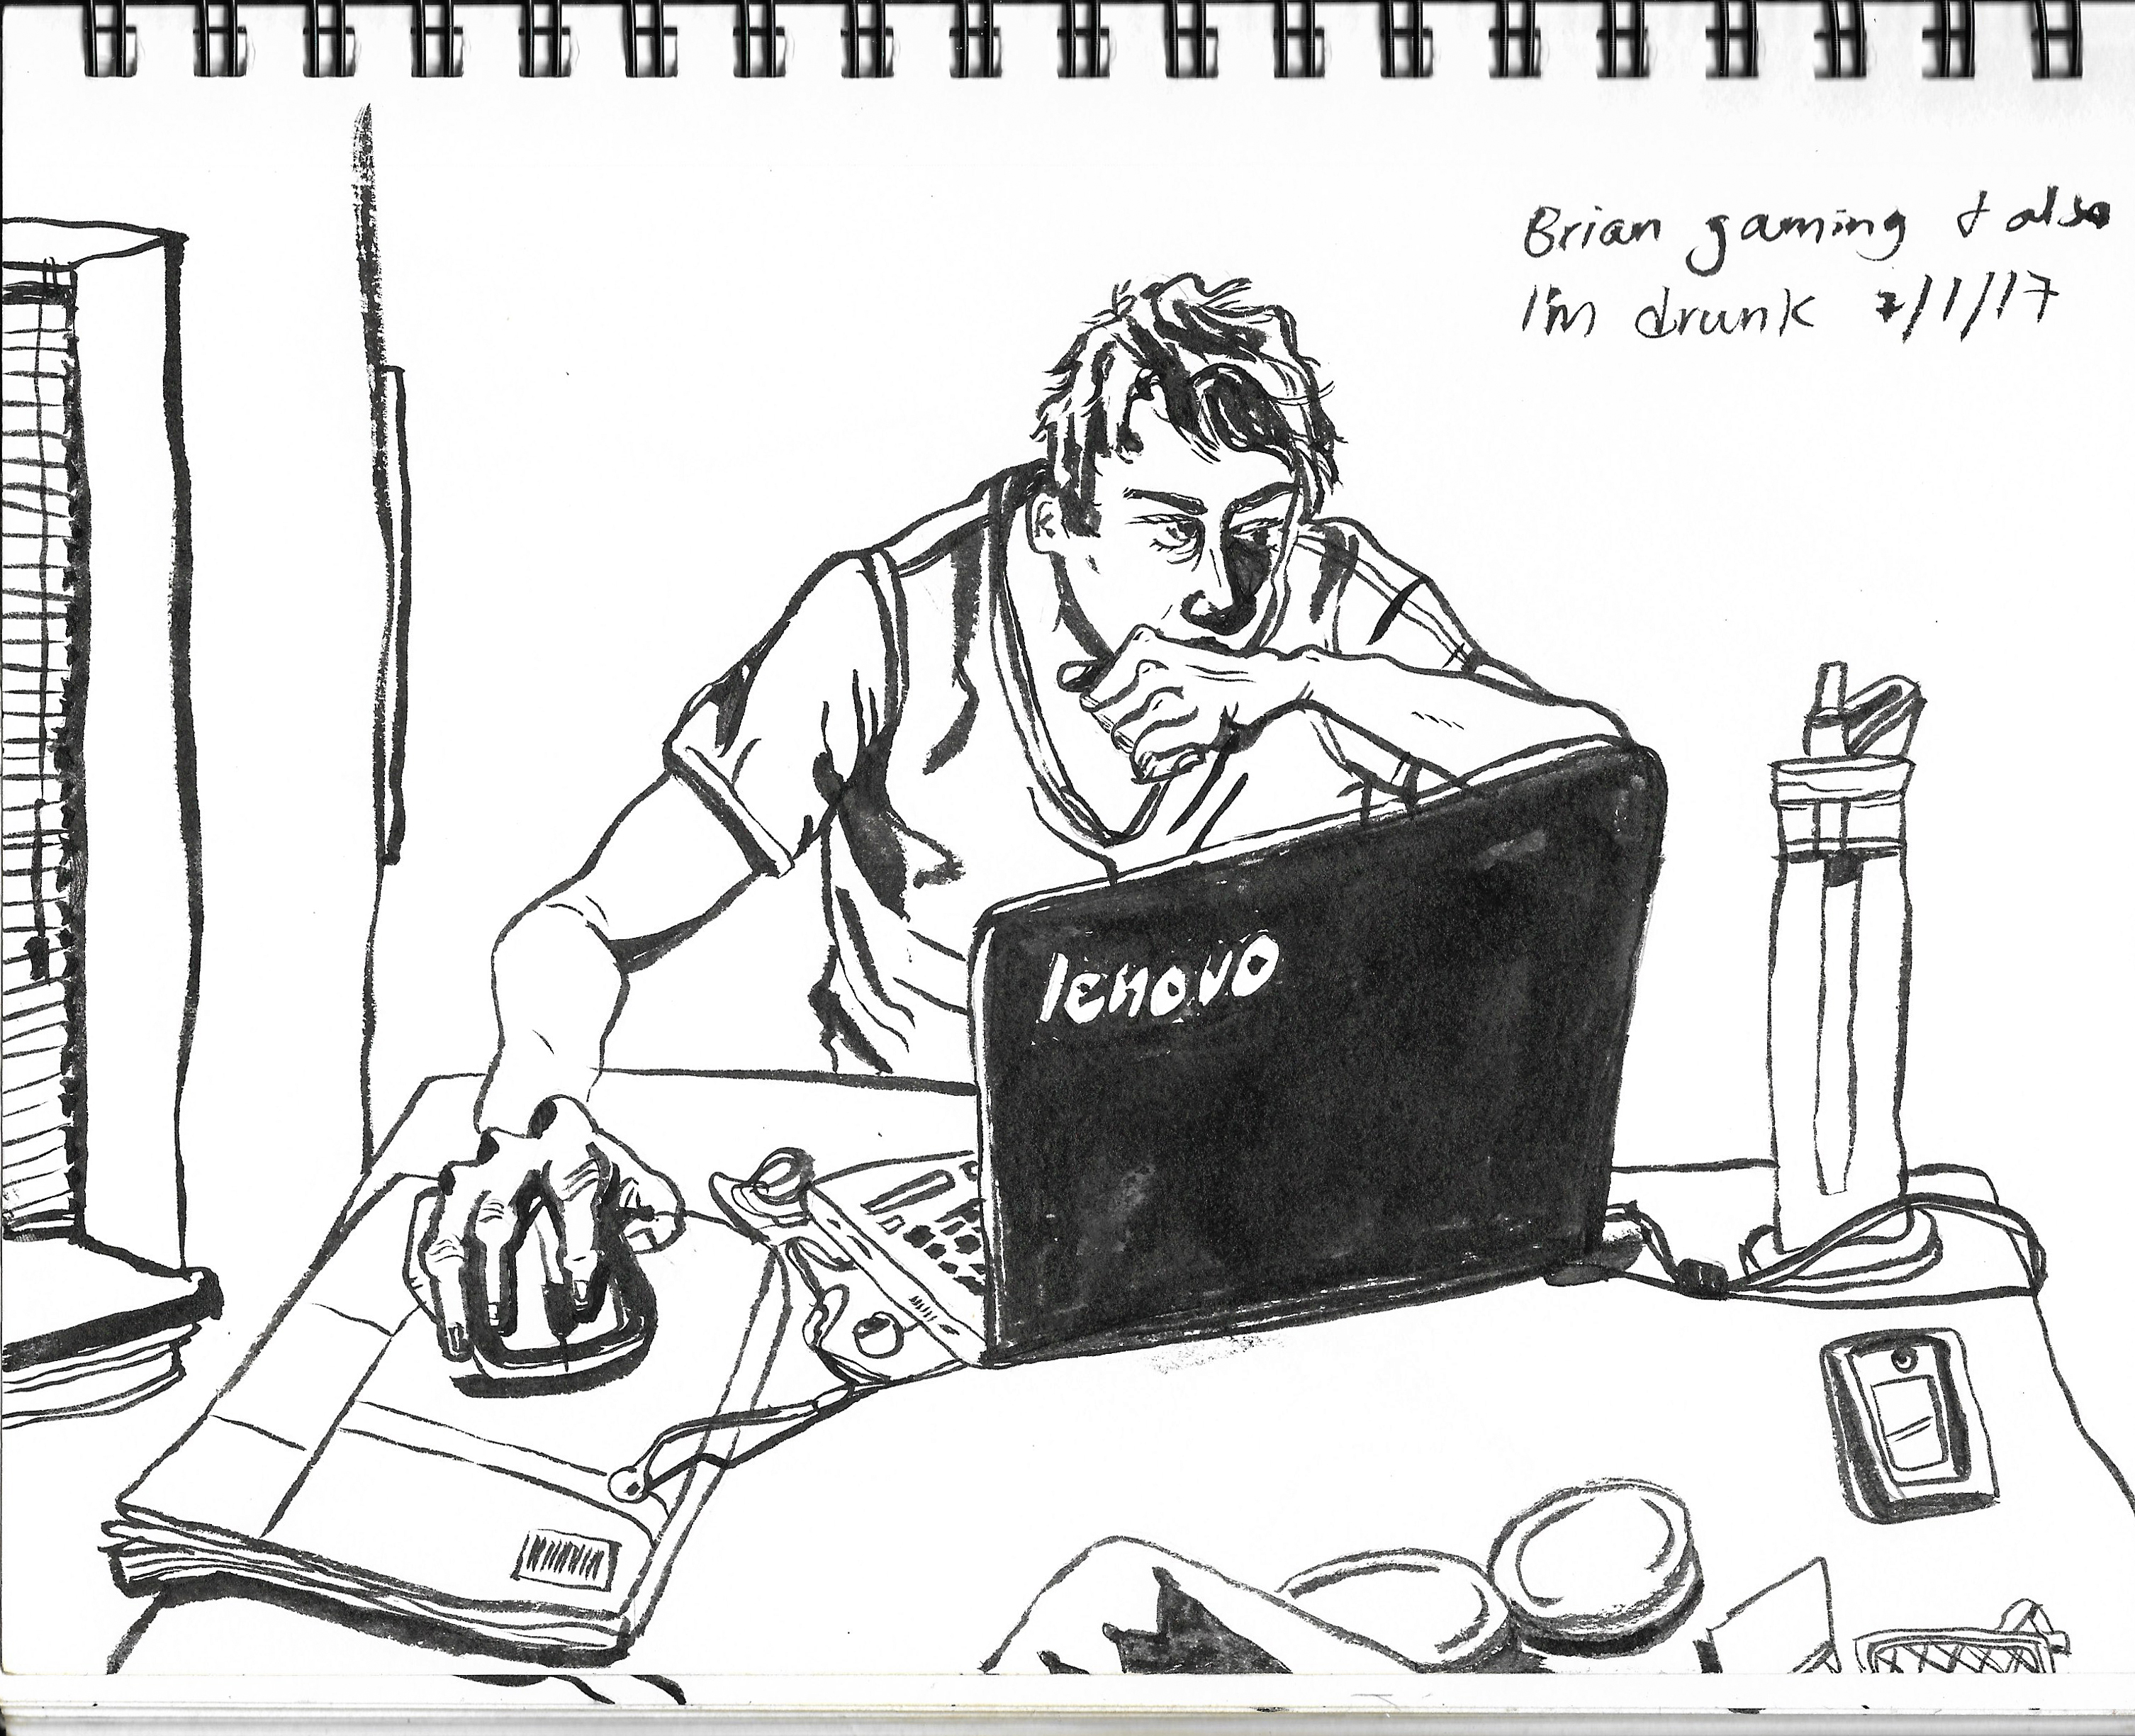 Brian gaming & also
I'm drunk 7/1/17
lenovo